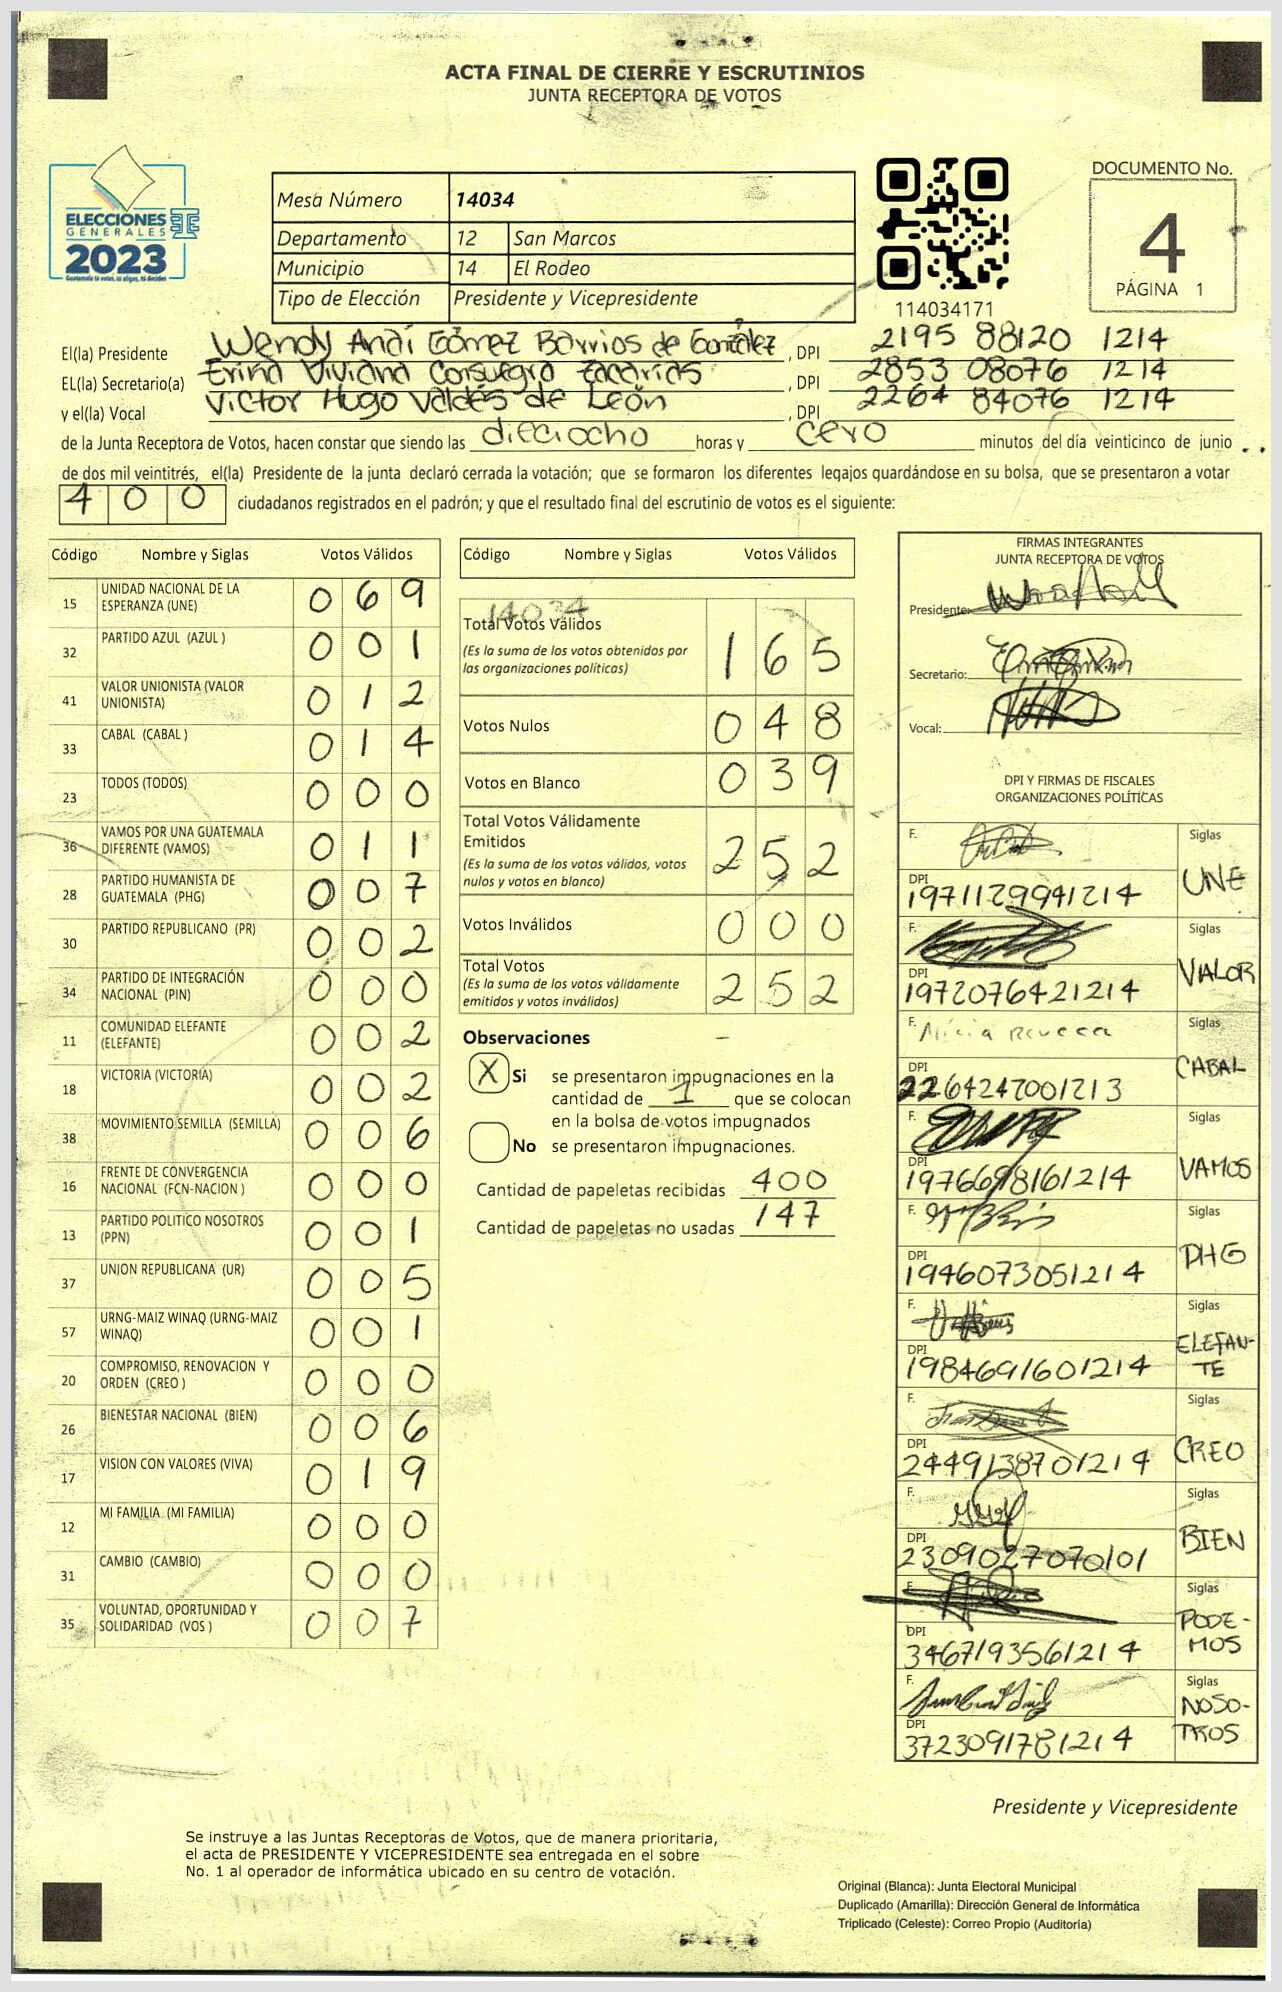 ACTA FINAL DE CIERRE Y ESCRUTINIOS
JUNTA RECEPTORA DE VOTOS
ELECCIONES
GENERALES
2023
Mesa Número 14034
Departamento 12 San Marcos
Municipio 14 El Rodeo
Tipo de Elección Presidente y Vicepresidente
114034171
DOCUMENTO No.
4
PÁGINA 1
El(la) Presidente Wendy Andí Gómez Barrios de González, DPI 2195 88120 1214
EL(la) Secretario(a) Erina Viviana Consuegra Zacarías, DPI 2853 08076 1214
y el(la) Vocal Victor Hugo Valdés de León, DPI 2264 84076 1214
de la Junta Receptora de Votos, hacen constar que siendo las dieciocho horas y cero minutos del día veinticinco de junio
de dos mil veintitrés, el(la) Presidente de la junta declaró cerrada la votación; que se formaron los diferentes legajos guardándose en su bolsa, que se presentaron a votar
400 ciudadanos registrados en el padrón; y que el resultado final del escrutinio de votos es el siguiente:
Código Nombre y Siglas Votos Válidos
15 UNIDAD NACIONAL DE LA ESPERANZA (UNE) 0 6 9
32 PARTIDO AZUL (AZUL ) 0 0 1
41 VALOR UNIONISTA (VALOR UNIONISTA) 0 1 2
33 CABAL (CABAL ) 0 1 4
23 TODOS (TODOS) 0 0 0
36 VAMOS POR UNA GUATEMALA DIFERENTE (VAMOS) 0 1 1
28 PARTIDO HUMANISTA DE GUATEMALA (PHG) 0 0 7
30 PARTIDO REPUBLICANO (PR) 0 0 2
34 PARTIDO DE INTEGRACIÓN NACIONAL (PIN) 0 0 0
11 COMUNIDAD ELEFANTE (ELEFANTE) 0 0 2
18 VICTORIA (VICTORIA) 0 0 2
38 MOVIMIENTO SEMILLA (SEMILLA) 0 0 6
16 FRENTE DE CONVERGENCIA NACIONAL (FCN-NACION ) 0 0 0
13 PARTIDO POLITICO NOSOTROS (PPN) 0 0 1
37 UNION REPUBLICANA (UR) 0 0 5
57 URNG-MAIZ WINAQ (URNG-MAIZ WINAQ) 0 0 1
20 COMPROMISO, RENOVACION Y ORDEN (CREO ) 0 0 0
26 BIENESTAR NACIONAL (BIEN) 0 0 6
17 VISION CON VALORES (VIVA) 0 1 9
12 MI FAMILIA (MI FAMILIA) 0 0 0
31 CAMBIO (CAMBIO) 0 0 0
35 VOLUNTAD, OPORTUNIDAD Y SOLIDARIDAD (VOS ) 0 0 7
Código Nombre y Siglas Votos Válidos
14034
Total Votos Válidos
(Es la suma de los votos obtenidos por las organizaciones políticas) 1 6 5
Votos Nulos 0 4 8
Votos en Blanco 0 3 9
Total Votos Válidamente Emitidos
(Es la suma de los votos válidos, votos nulos y votos en blanco) 2 5 2
Votos Inválidos 0 0 0
Total Votos
(Es la suma de los votos válidamente emitidos y votos inválidos) 2 5 2
Observaciones
X Si se presentaron impugnaciones en la
cantidad de 1 que se colocan
en la bolsa de votos impugnados
No se presentaron impugnaciones.
Cantidad de papeletas recibidas 400
Cantidad de papeletas no usadas 147
FIRMAS INTEGRANTES
JUNTA RECEPTORA DE VOTOS
Presidente:
Secretario:
Vocal:
DPI Y FIRMAS DE FISCALES
ORGANIZACIONES POLÍTICAS
F. Siglas
DPI 1971129941214 UNE
F. Siglas
DPI 1972076421214 VALOR
F. Siglas
DPI 2264247001213 CABAL
F. Siglas
DPI 1976698161214 VAMOS
F. Siglas
DPI 1946073051214 PHG
F. Siglas
DPI 1984691601214 ELEFAN-TE
F. Siglas
DPI 2449138701214 CREO
F. Siglas
DPI 2309027070101 BIEN
F. Siglas
DPI 3467193561214 PODE-MOS
F. Siglas
DPI 3723091781214 NOSO-TROS
Presidente y Vicepresidente
Se instruye a las Juntas Receptoras de Votos, que de manera prioritaria,
el acta de PRESIDENTE Y VICEPRESIDENTE sea entregada en el sobre
No. 1 al operador de informática ubicado en su centro de votación.
Original (Blanca): Junta Electoral Municipal
Duplicado (Amarilla): Dirección General de Informática
Triplicado (Celeste): Correo Propio (Auditoría)